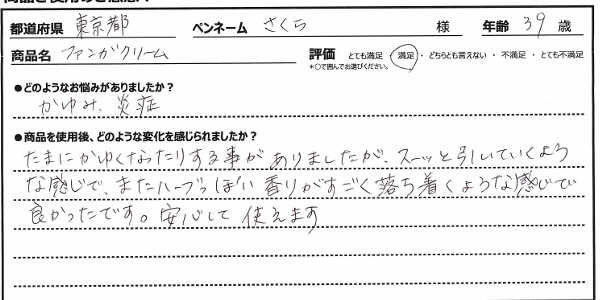 都道府県 東京都 ペンネーム さくら 様 年齢 39 歳
商品名 ファンガクリーム 評価 とても満足・満足・どちらとも言えない・不満足・とても不満足
*○で囲んでお選びください。
●どのようなお悩みがありましたか?
かゆみ、炎症
●商品を使用後、どのような変化を感じられましたか?
たまにかゆくなったりする事がありましたが、スーッと引いていくよう
な感じで、またハーブっぽい香りがすごく落ち着くような感じで
良かったです。安心して使えます